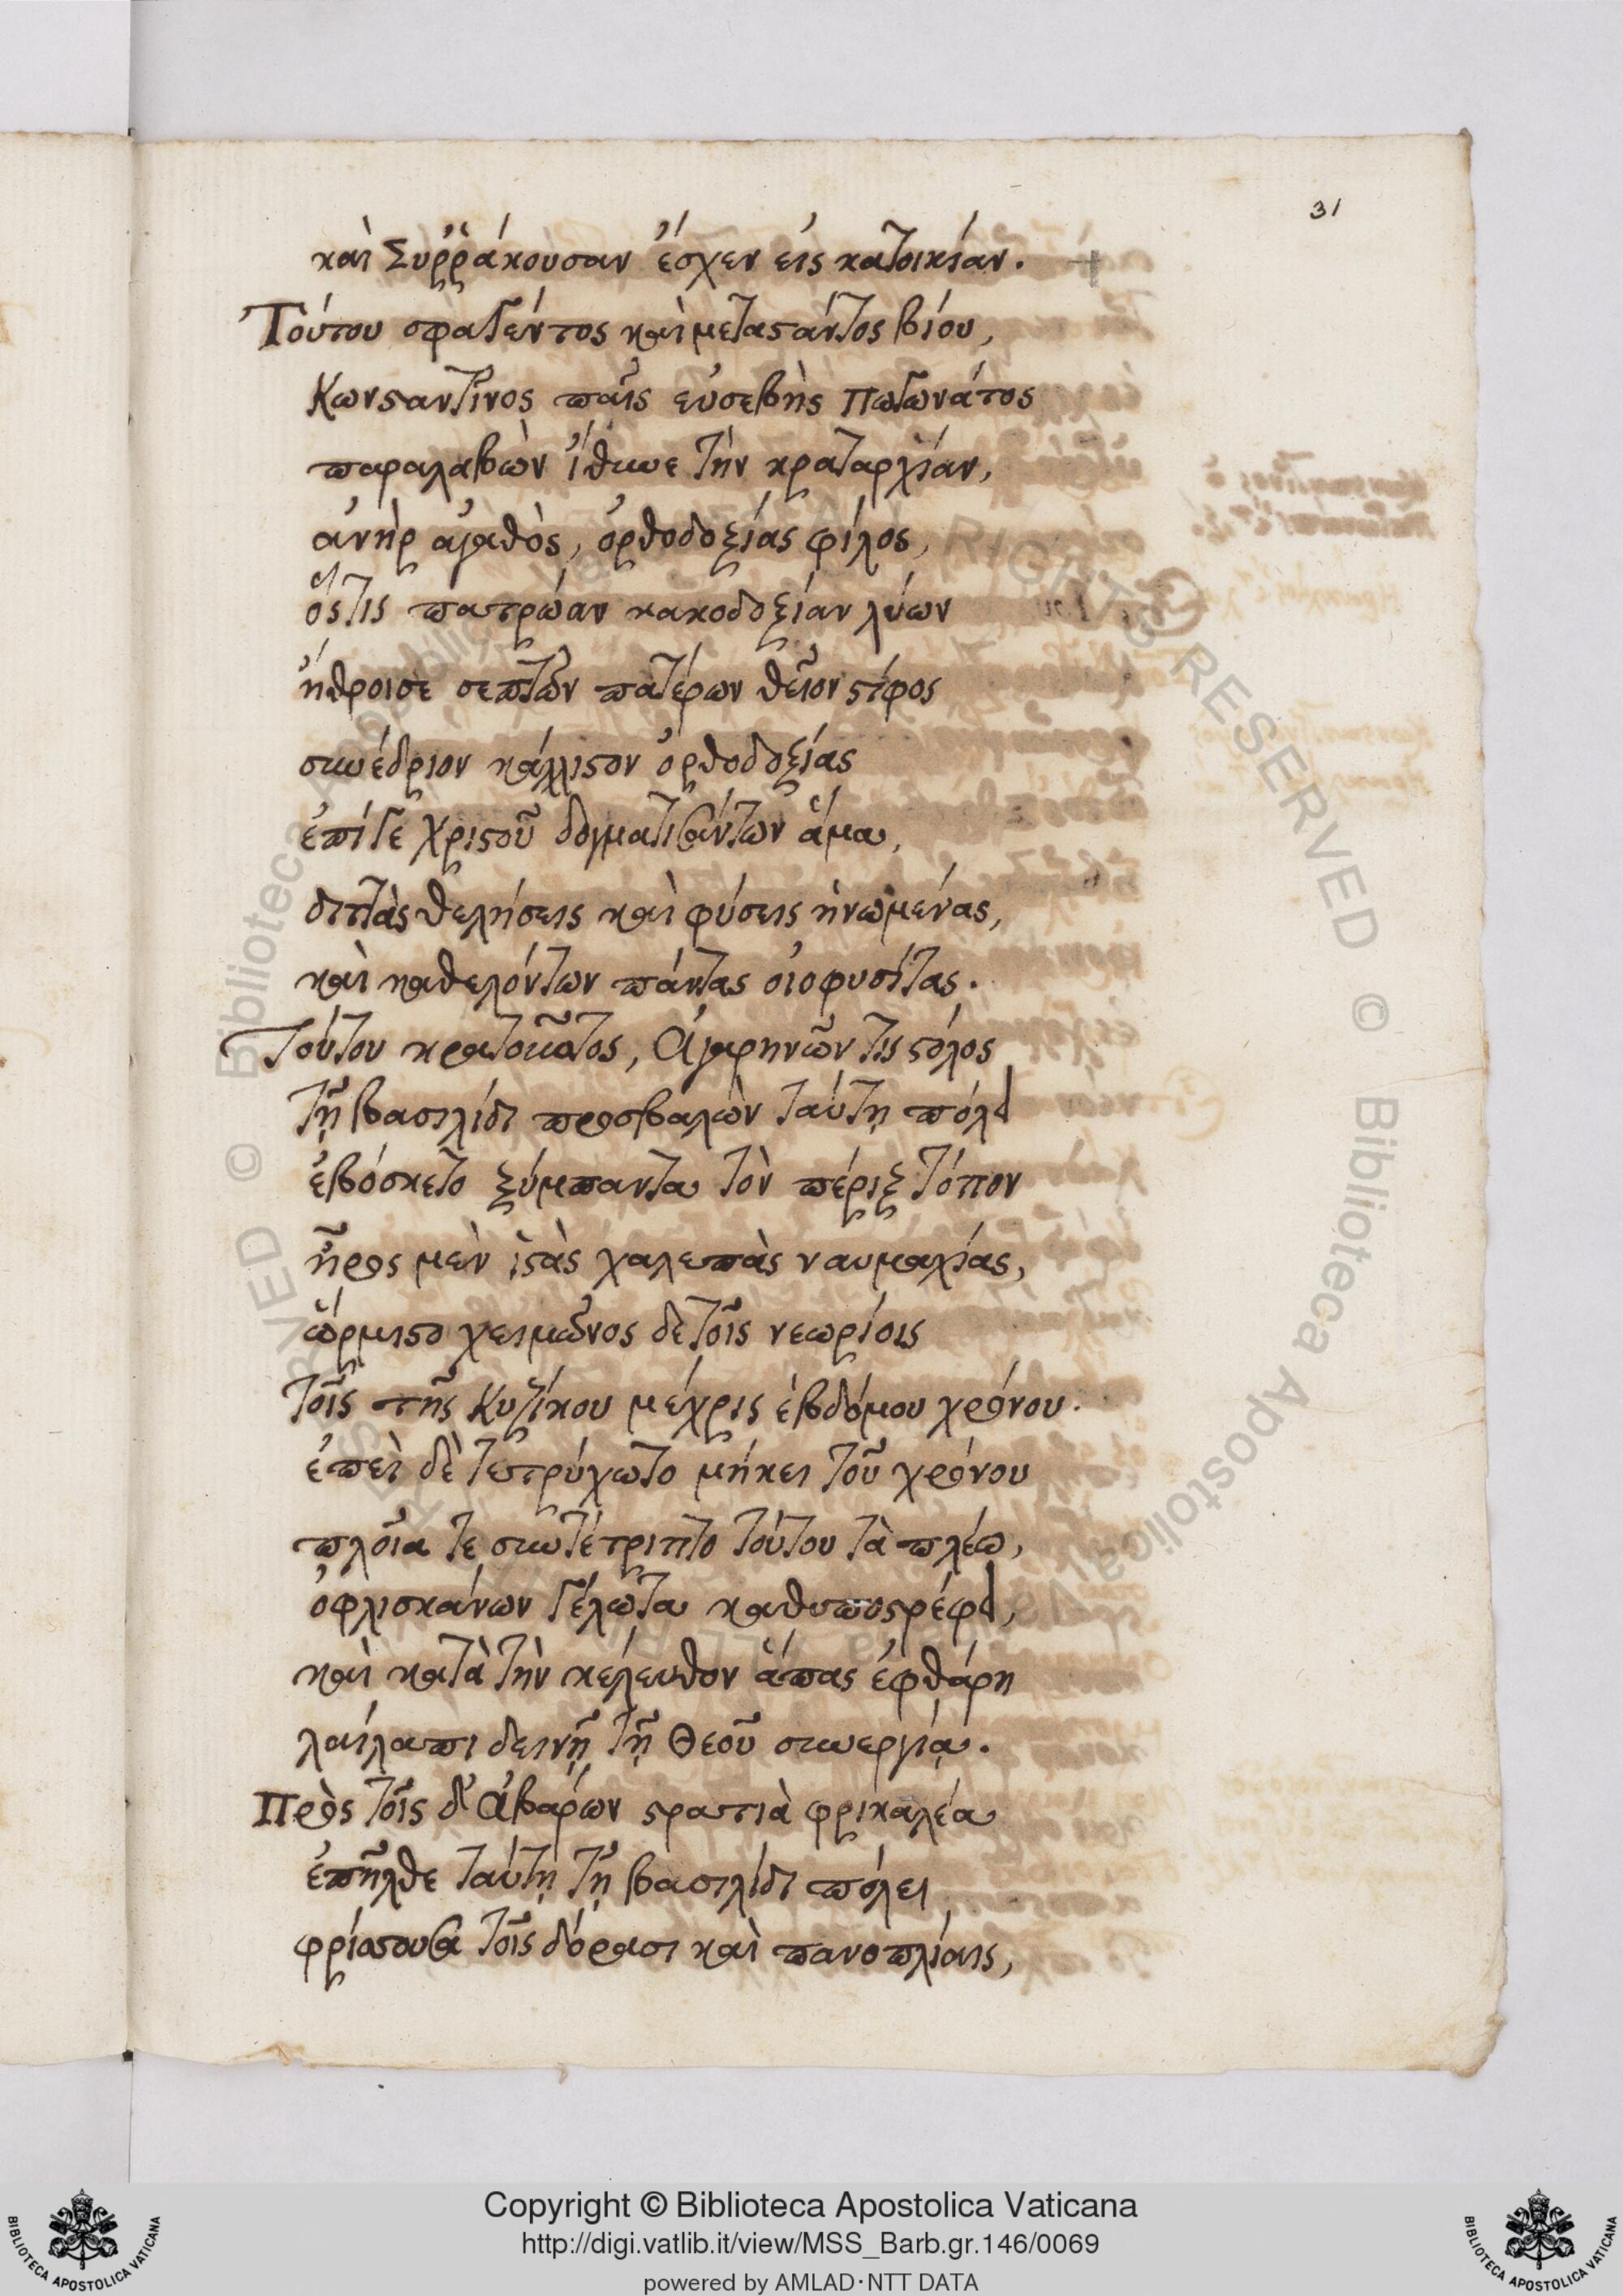 31
καὶ Συῤῥάκουσαν ἔσχεν εἰς κατοικίαν.
Τούτου σφαγέντος καὶ μεταστάντος βίου,
Κωνσταντῖνος παῖς εὐσεβὴς Πωγωνάτος
παραλαβὼν ἴθυνε τὴν κραταρχίαν,
ἀνὴρ ἀγαθὸς, ὀρθοδοξίας φίλος,
ὅστις πατρῴαν κακοδοξίαν λύων
ἤθροισε σεπτῶν πατέρων θεῖον στίφος
συνέδριον κάλλιστον ὀρθοδοξίας
ἐπί γε Χριστοῦ δογματισάντων ἅμα,
διττὰς θελήσεις καὶ φύσεις ἡνωμένας,
καὶ καθελόντων πάντας οἰοφυσίτας.
Τούτου κρατοῦντος, Ἀγαρηνῶν τις στόλος
τῇ βασιλίδι προσβαλὼν ταύτῃ πόλει
ἐβόσκετο ξύμπαντα τὸν πέριξ τόπον
ἦρος μὲν ἱστὰς χαλεπὰς ναυμαχίας,
ὥρμιστο χειμῶνος δὲ τοῖς νεωρίοις
τοῖς τῆς Κυζίκου μέχρις ἑβδόμου χρόνου.
ἐπεὶ δὲ τετρύχωτο μήκει τοῦ χρόνου
πλοῖα τε συντέτριπτο τούτου τὰ πλέω,
ὀφλισκάνων γέλωτα καθυποστρέφει,
καὶ κατὰ τὴν κέλευθον ἅπας ἐφθάρη
λαίλαπι δεινῇ τῇ Θεοῦ συνεργίᾳ.
Πρὸς τοῖς δ' Ἀβάρων στρατιὰ φρικαλέα
ἐπῆλθε ταύτῃ τῇ βασιλίδι πόλει
φρίσσουσα τοῖς δόρασι καὶ πανοπλίαις,
© Biblioteca Apostolica Vaticana ALL RIGHTS RESERVED © Biblioteca Apostolica Vaticana ALL RIGHTS RESERVED
Copyright © Biblioteca Apostolica Vaticana
http://digi.vatlib.it/view/MSS_Barb.gr.146/0069
powered by AMLAD·NTT DATA
BIBLIOTECA APOSTOLICA VATICANA
BIBLIOTECA APOSTOLICA VATICANA